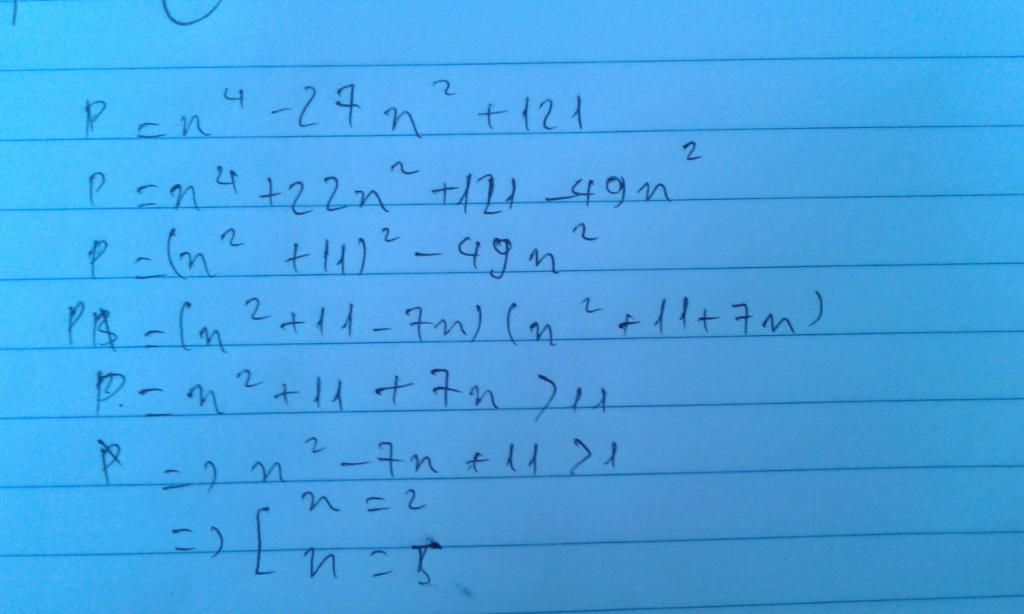 P = n⁴ - 27n² + 121
P = n⁴ + 22n² + 121 - 49n²
P = (n² + 11)² - 49n²
P = (n² + 11 - 7n) (n² + 11 + 7n)
P = n² + 11 + 7n > 11
=> n² - 7n + 11 > 1
n = 2
=> [
n = 5